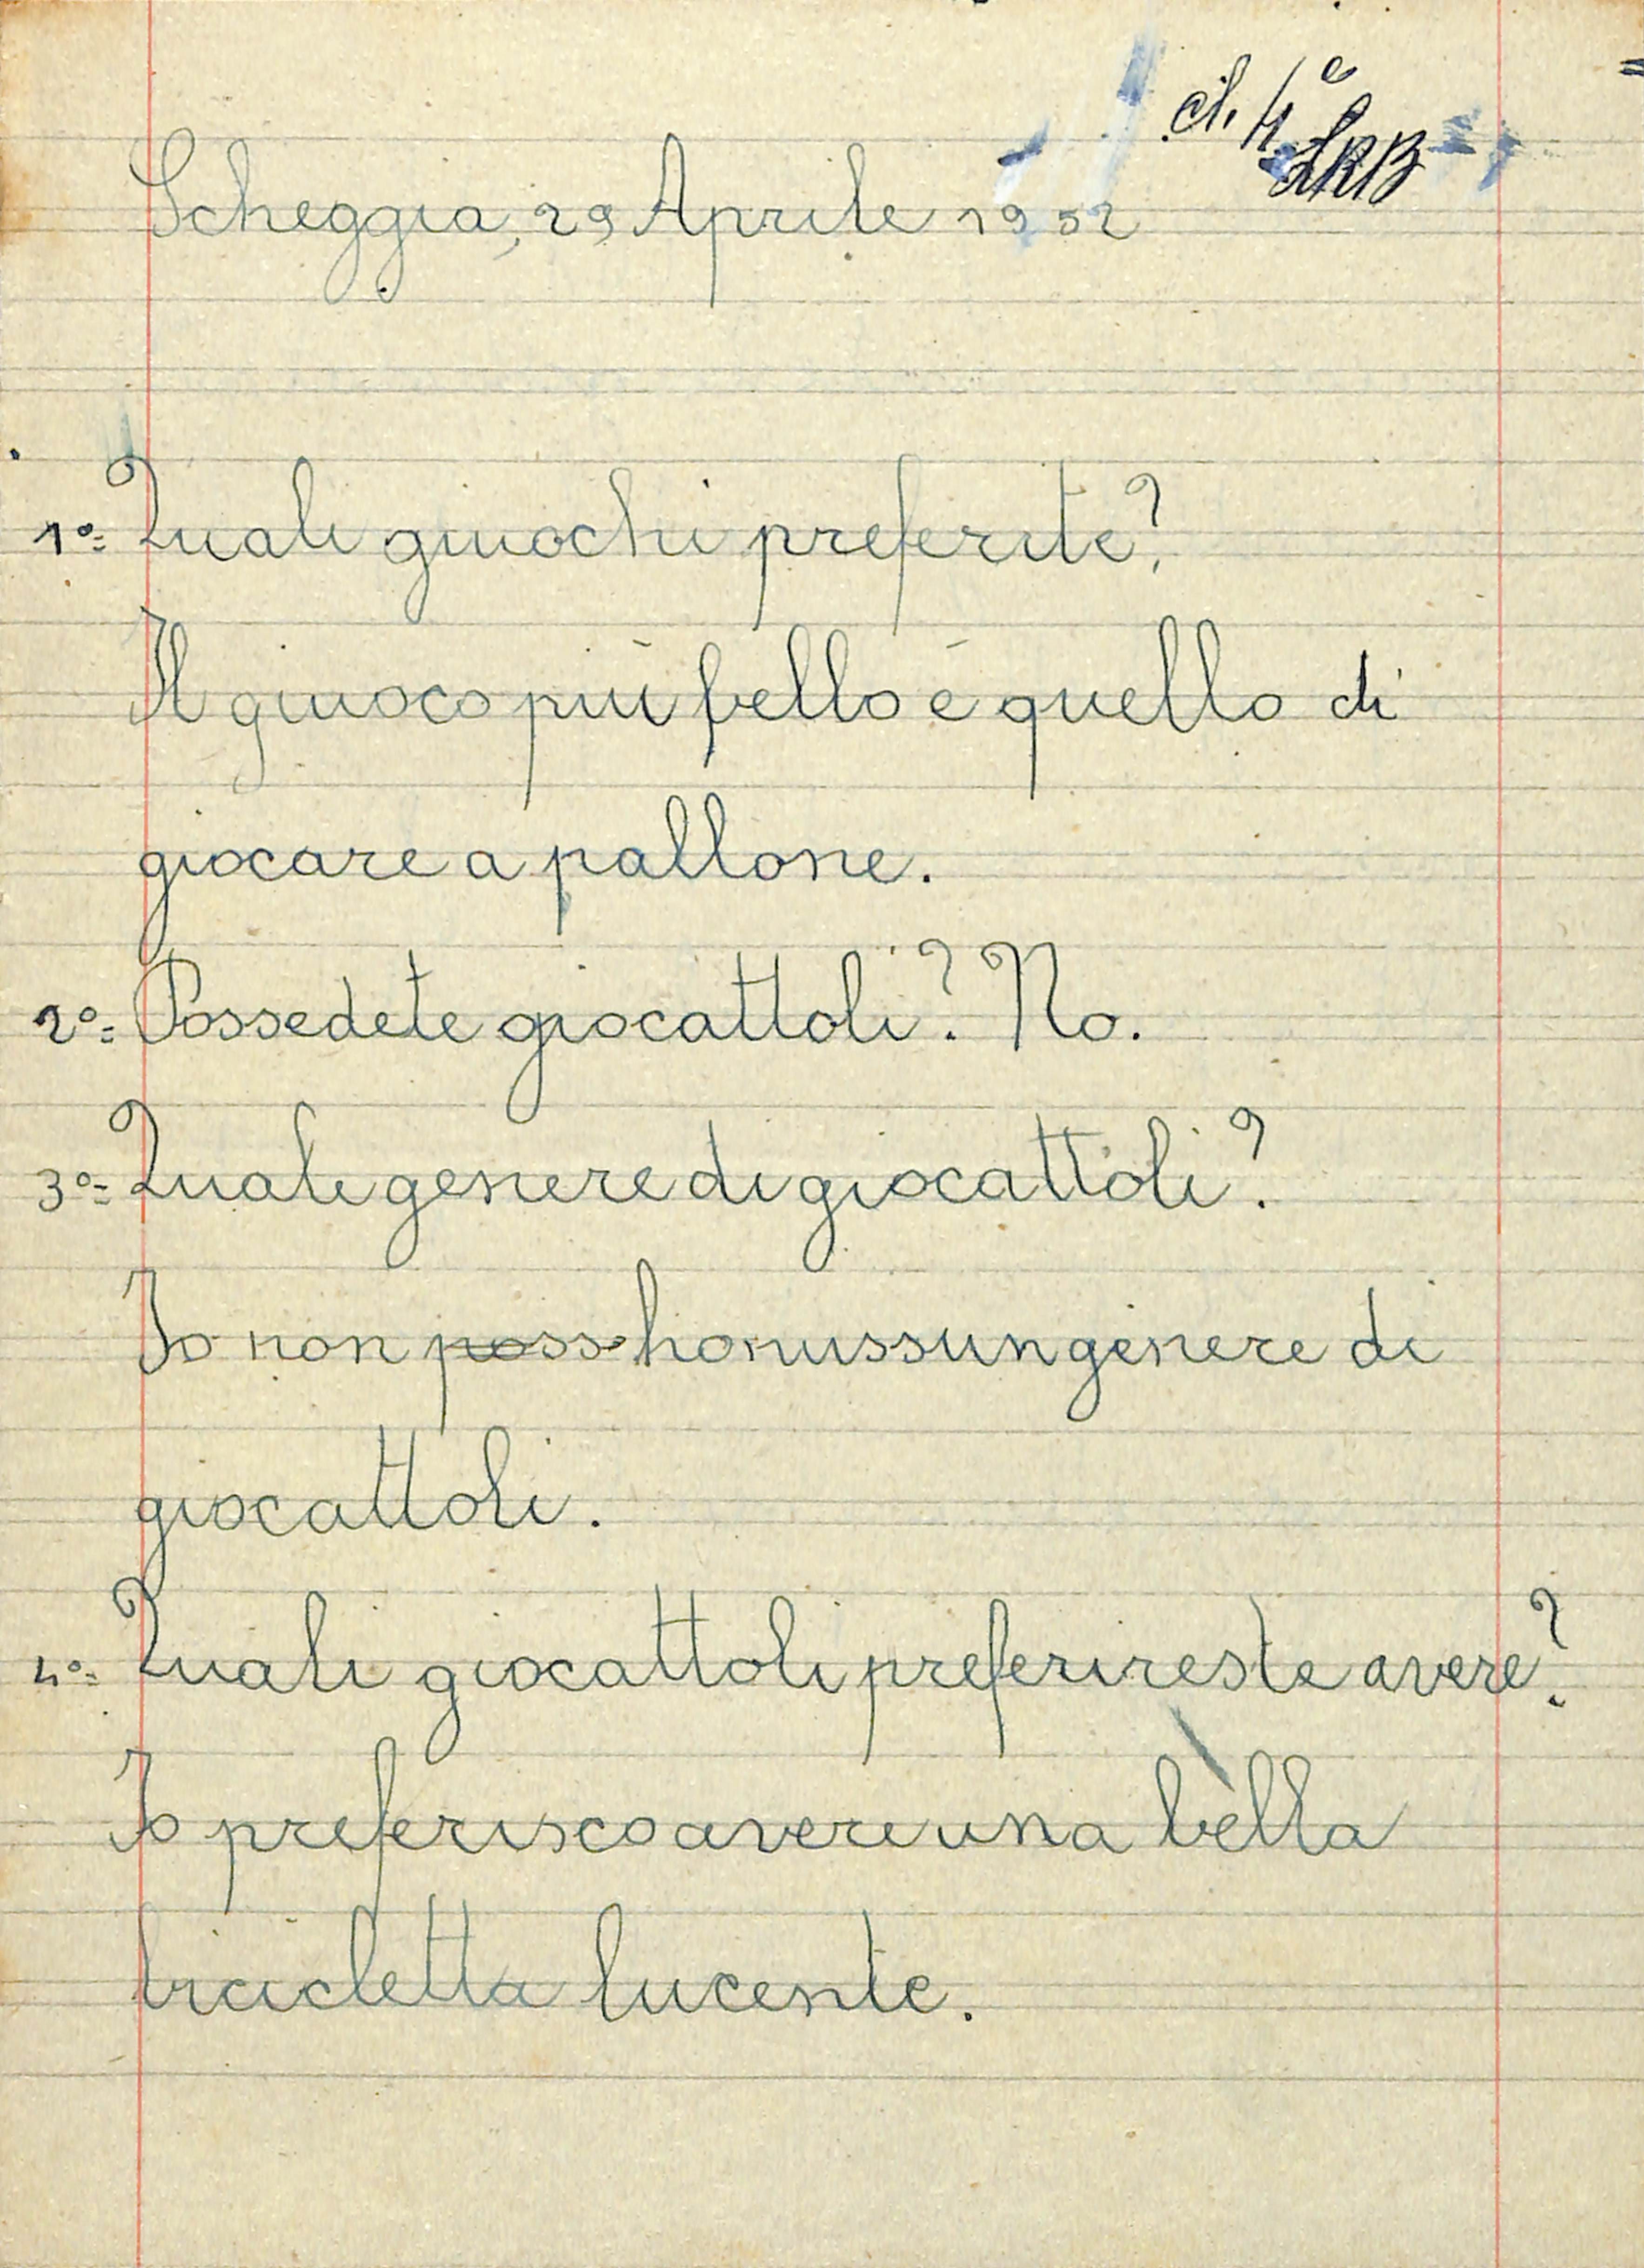 cl. 4e
Scheggia, 29 Aprile 1952
1°= Quali giuochi preferite?
Il giuoco più bello è quello di
giocare a pallone.
2°= Possedete giocattoli? No.
3°= Quale genere di giocattoli?
Io non poss ho nussun genere di
giocattoli.
4°= Quali giocattoli preferireste avere?
Io preferisco avere una bella
bricicletta lucente.